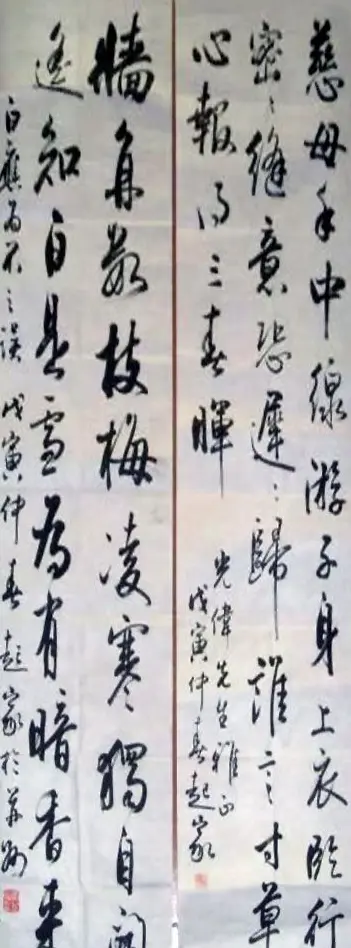 慈母手中線游子身上衣臨行
密々縫意恐遲々歸誰言寸草
心報得三春暉
光偉先生雅正
戊寅仲春起家
牆角數枝梅凌寒獨自開
遙知自是雪為有暗香來
自應為不之誤 戊寅仲春起家於并州